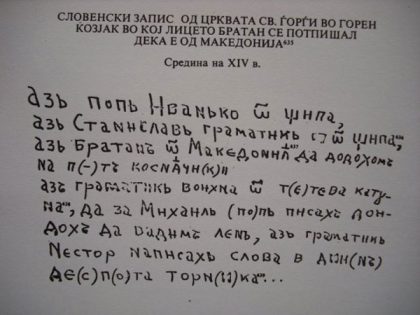 СЛОВЕНСКИ ЗАПИС ОД ЦРКВАТА СВ. ЃОРЃИ ВО ГОРЕН
КОЗЈАК ВО КОЈ ЛИЦЕТО БРАТАН СЕ ПОТПИШАЛ
ДЕКА Е ОД МАКЕДОНИЈА⁶³⁵
Средина на XIV в.
азъ попъ Иванько ѿ щипа,
азъ Станиславъ граматикъ ѿ щипа,
азъ Братанъ ѿ Македониѧ да додохомъ
на п(-)тъ
азъ граматикь ѿ т(е)това
да за Михаилъ (по)пь писахъ
дохъ да видимъ азъ граматикь
Несторъ написахъ слова в
де(с)п(о)та